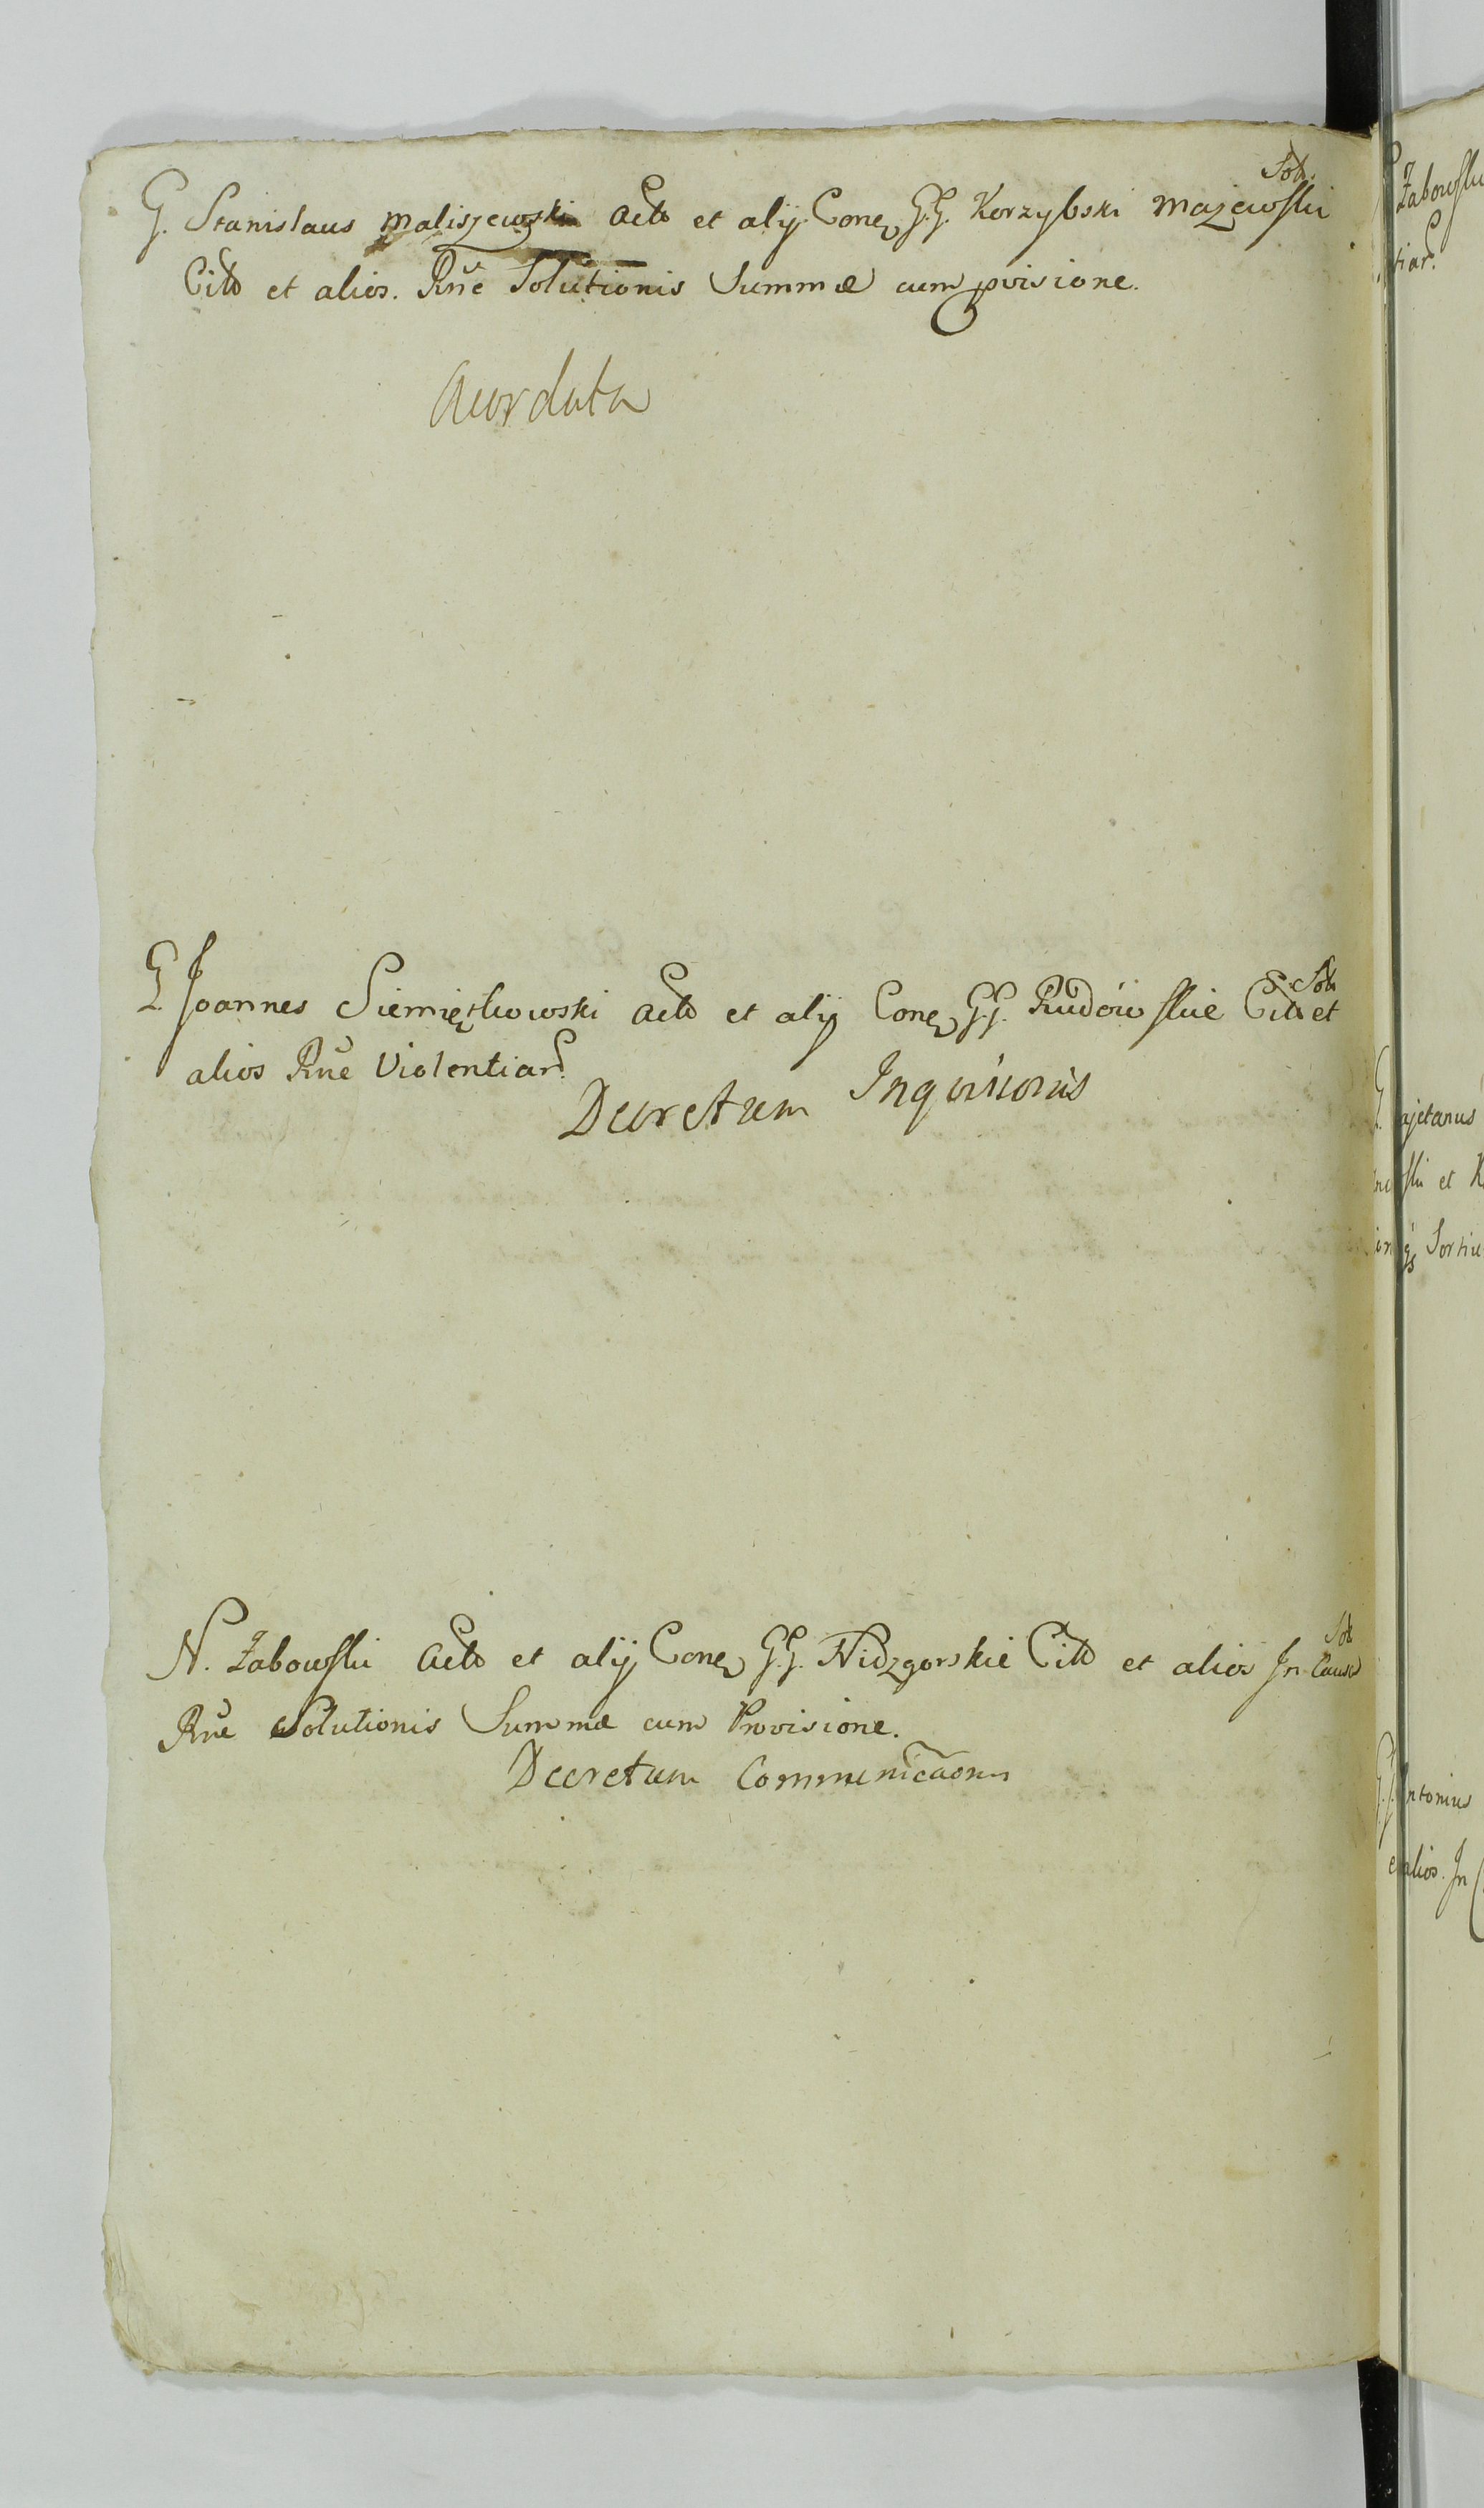 Sob.
G. Stanislaus Maliszewski Actō et alij Conq G.G. Korzybski Mazewski
Citō et alios. Rñe Solutionis Summæ cum pvisione.
Acordata
Sob
G Joannes Siemiątkowski Actō et alij Conq G.G. Rudowskie Citō et
alios Rñe Violentiar
Decretum Inquisionis
Sob
N. Zabowski Actō et alij Conq G.G. Nidzgorskie Citō et alios In Causa
Rñe Solutionis Summæ cum Provisione.
Decretum Commnicãonis
Zabowski
tiar
ajetanus
ski et
Sortiu
G.G. Antonius
et alios. In